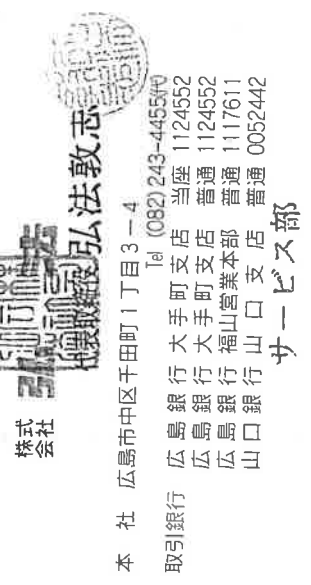 株式会社 弘法
代表取締役 弘法敦志
本社 広島市中区千田町1丁目3-4
Tel (082)243-4455㈹
取引銀行 広島銀行 大手町支店 当座 1124552
広島銀行 大手町支店 普通 1124552
広島銀行 福山営業本部 普通 1117611
山口銀行 山口支店 普通 0052442
サービス部